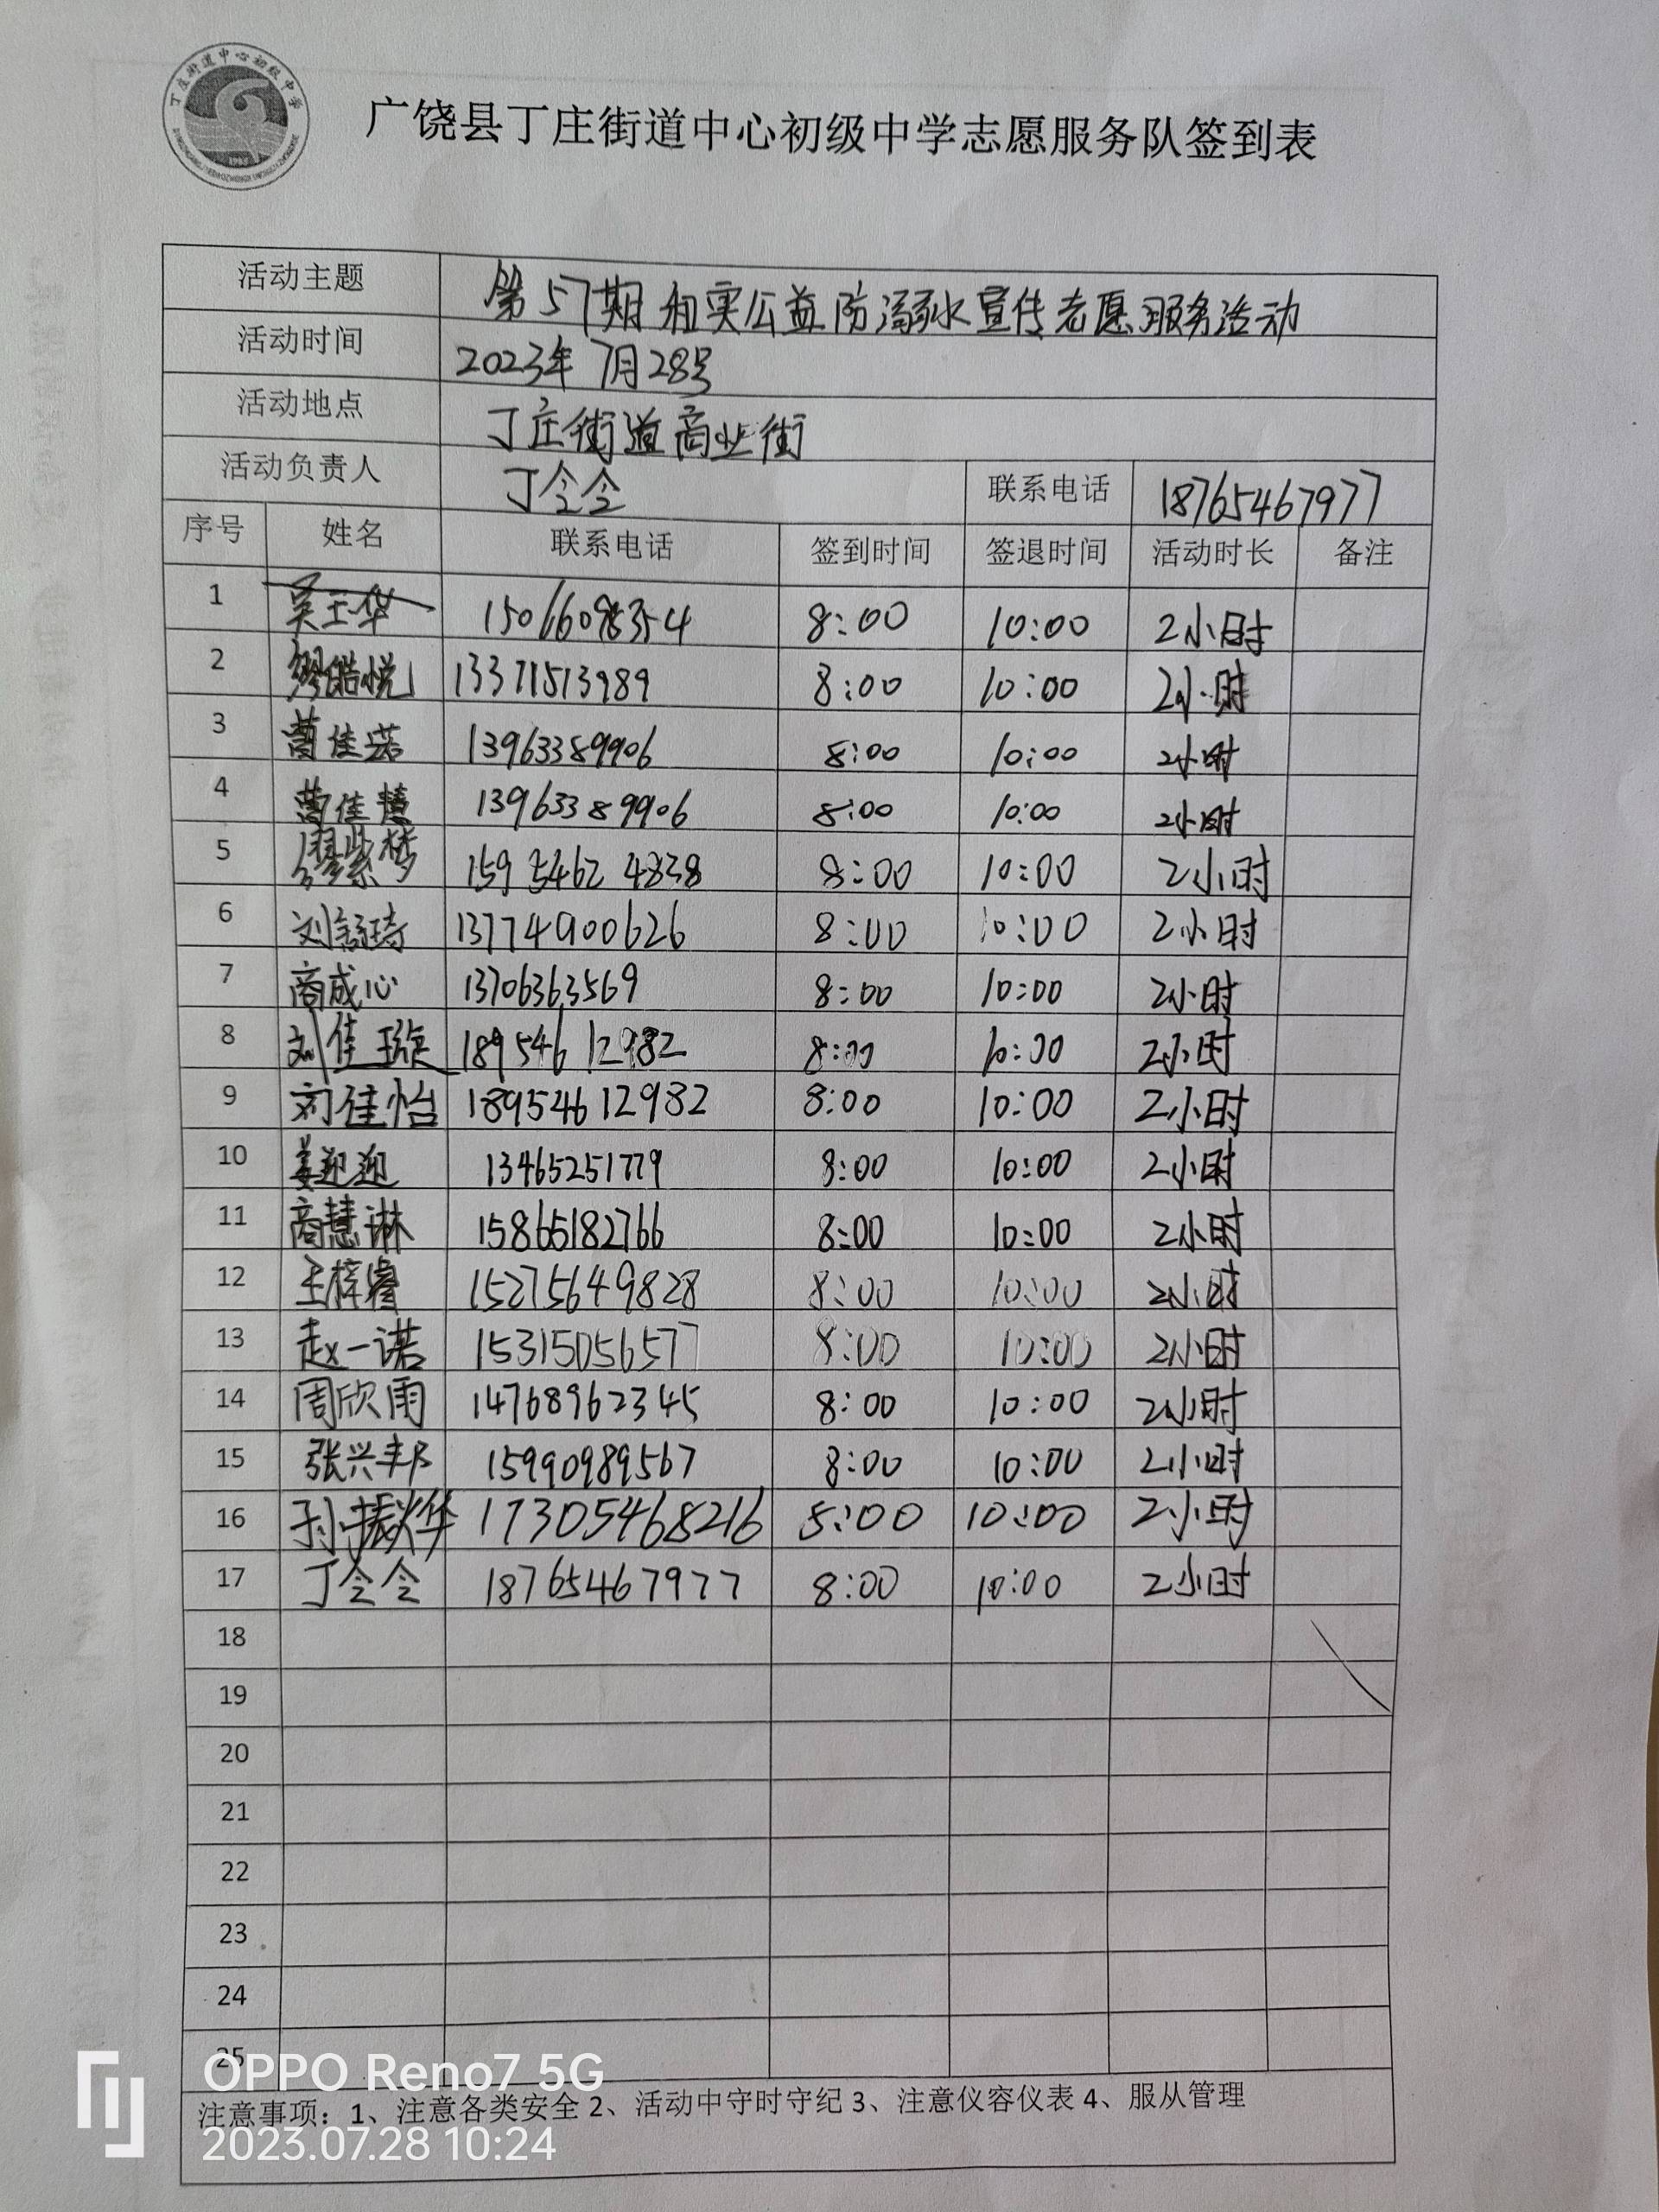 丁庄街道中心初级中学
广饶县丁庄街道中心初级中学志愿服务队签到表
活动主题 第57期 和实公益防溺水宣传志愿服务活动
活动时间 2023年 7月28号
活动地点 丁庄街道商业街
活动负责人 丁令令 联系电话 18765467977
序号 姓名 联系电话 签到时间 签退时间 活动时长 备注
1 吴玉华 8:00 10:00 2小时
2 13371513989 8:00 10:00 2小时
3 曹佳诺 13963389906 8:00 10:00 2小时
4 曹佳慧 13963389906 8:00 10:00 2小时
5 缪紫梦 159 5462 4838 8:00 10:00 2小时
6 刘 13774900626 8:00 10:00 2小时
7 商成心 13706363569 8:00 10:00 2小时
8 刘佳璇 189546 12982 8:00 10:00 2小时
9 刘佳怡 18954612982 8:00 10:00 2小时
10 姜迎迎 13465251779 8:00 10:00 2小时
11 商慧琳 15865182766 8:00 10:00 2小时
12 王梓睿 15275649828 8:00 10:00 2小时
13 赵一诺 15315056577 8:00 10:00 2小时
14 周欣雨 14768962345 8:00 10:00 2小时
15 张兴邦 15990989567 8:00 10:00 2小时
16 孙振烨 17305468216 8:00 10:00 2小时
17 丁令令 18765467977 8:00 10:00 2小时
18
19
20
21
22
23
24
25
OPPO Reno7 5G
注意事项：1、注意各类安全 2、活动中守时守纪 3、注意仪容仪表 4、服从管理
2023.07.28 10:24